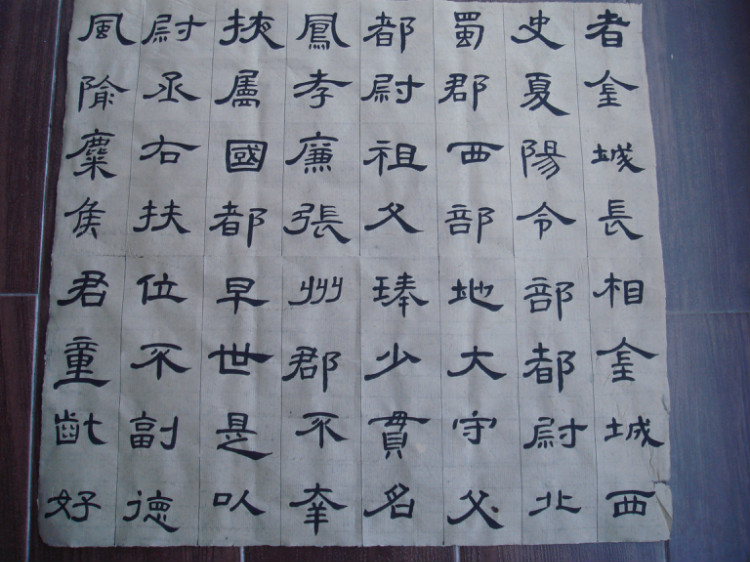 者金城長
史夏陽令
蜀郡西部
都尉祖父
鳳孝廉張
掖屬國都
尉丞右扶
風隃麋侯
相金城西
部都尉北
地大守父
琫少貫名
州郡不幸
早世是以
位不副德
君童齔好